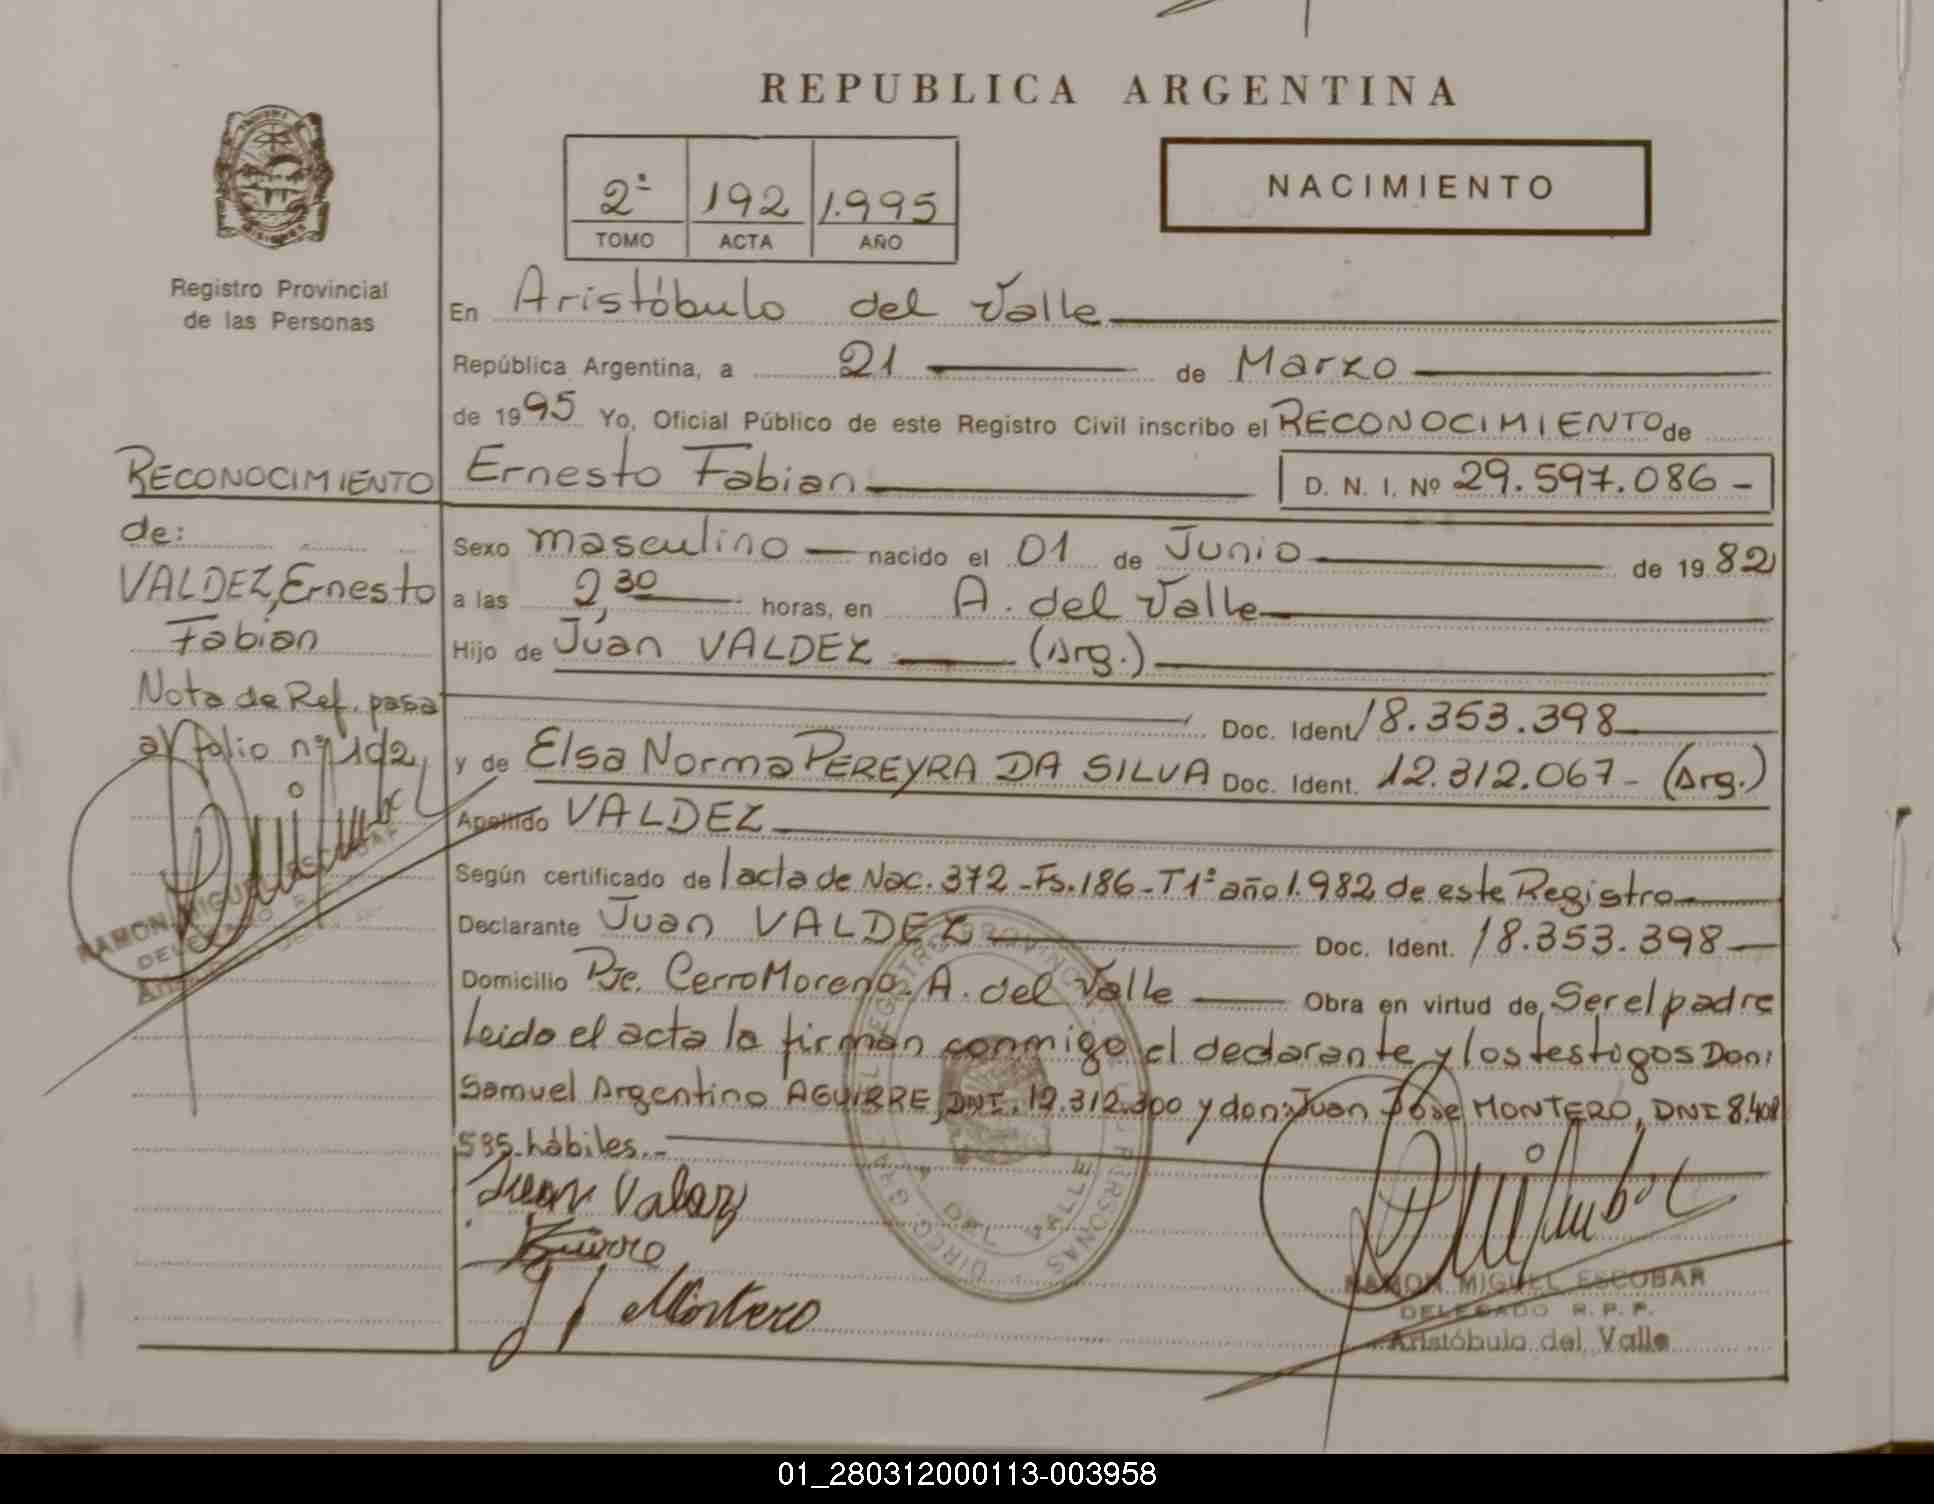 REPUBLICA ARGENTINA
2º 192 1.995
TOMO ACTA AÑO
NACIMIENTO
Registro Provincial
de las Personas
En Aristóbulo del Valle
República Argentina, a 21 de Marzo
de 1995 Yo, Oficial Público de este Registro Civil inscribo el RECONOCIMIENTO de
Ernesto Fabian D. N. I. Nº 29.597.086 -
RECONOCIMIENTO
de:
VALDEZ, Ernesto
Fabian
Nota de Ref. pasa
al folio nº 192
RAMON MIGUEL ESCOBAR
Sexo masculino nacido el 01 de Junio de 1982
a las 2,30 horas, en A. del Valle
Hijo de Juan VALDEZ (Arg.)
Doc. Ident. 18.353.398
y de Elsa Norma PEREYRA DA SILVA Doc. Ident. 12.312.067 - (Arg.)
Apellido VALDEZ
Según certificado de lacta de Nac. 372 - Fs. 186 - T1º año 1.982 de este Registro
Declarante Juan VALDEZ Doc. Ident. 18.353.398
Domicilio Pje. Cerro Moreno - A. del Valle Obra en virtud de Ser el padre
Leido el acta la firman conmigo el declarante y los testigos Don:
Samuel Argentino AGUIRRE, DNI. 12.312.300 y don: Juan Jose MONTERO, DNI 8.408
585 - hábiles.-
Juan Valdez
J J Montero
RAMON MIGUEL ESCOBAR
DELEGADO R. P. P.
Aristóbulo del Valle
01_280312000113-003958